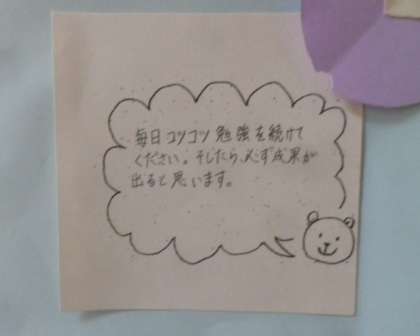 毎日コツコツ勉強を続けて
ください。そしたら、必ず成果が
出ると思います。